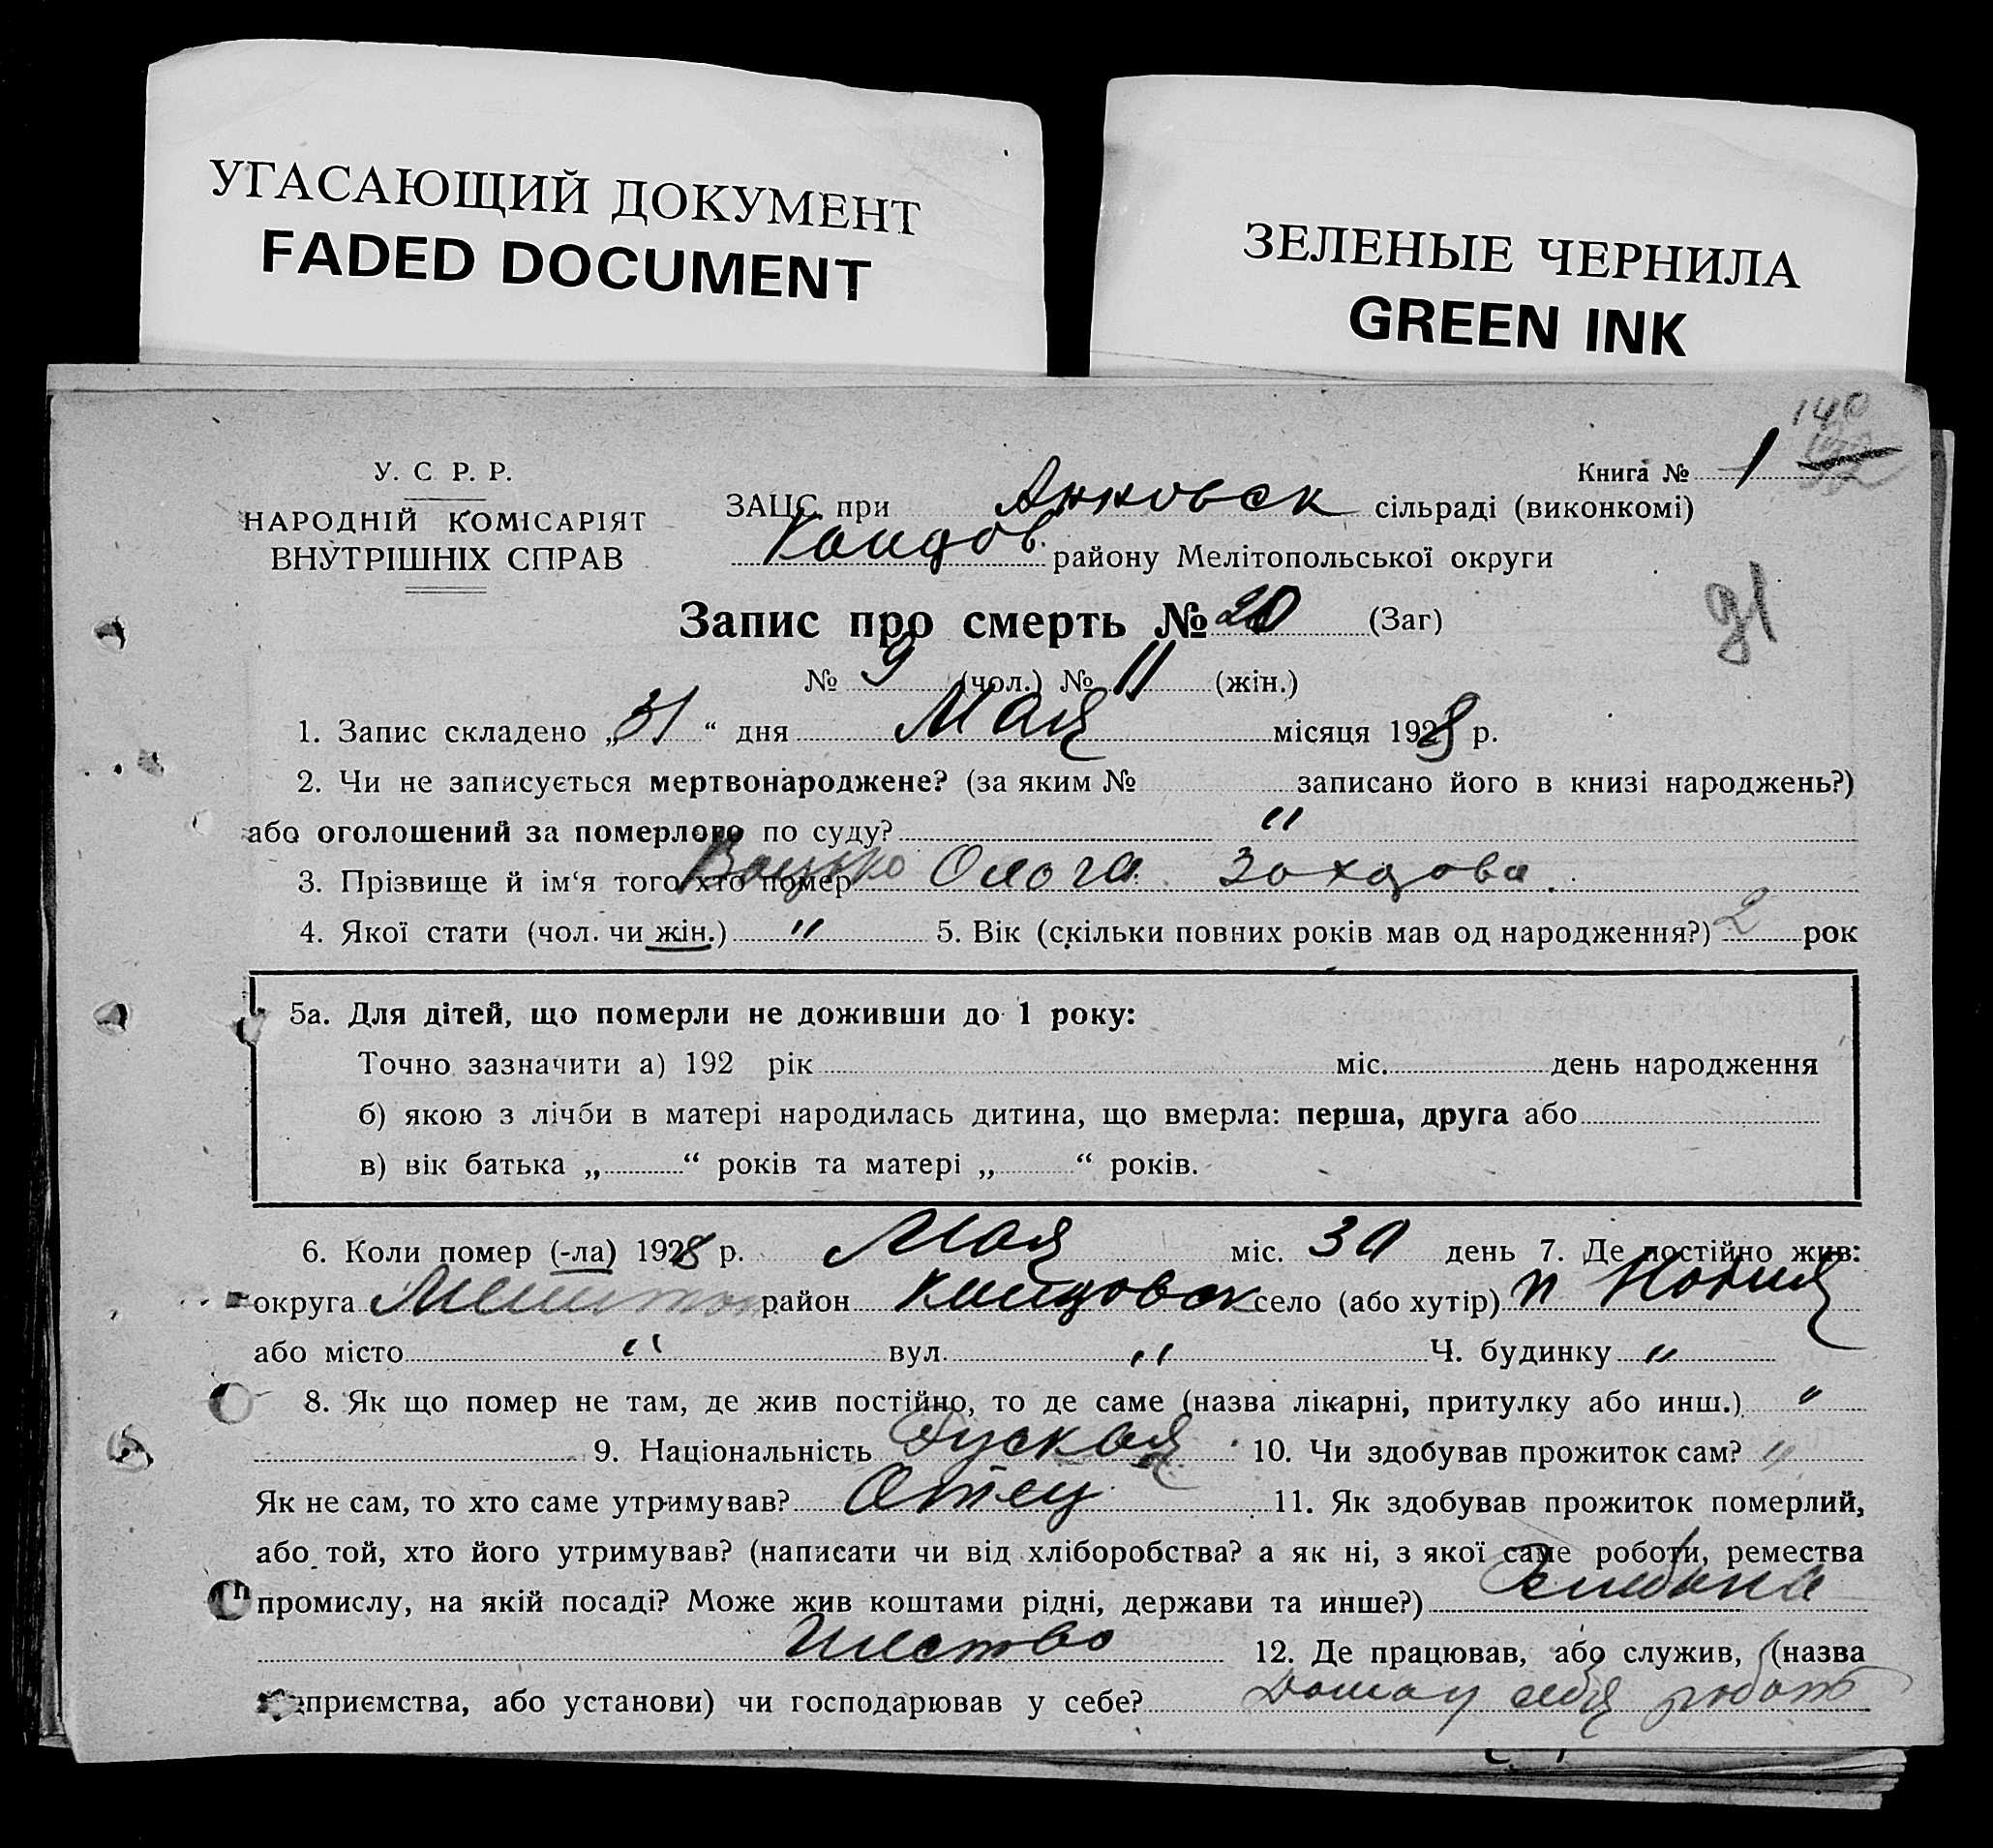 УГАСАЮЩИЙ ДОКУМЕНТ
FADED DOCUMENT
ЗЕЛЕНЫЕ ЧЕРНИЛА
GREEN INK
140
У. С. Р. Р.
НАРОДНІЙ КОМІСАРІЯТ
ВНУТРІШНІХ СПРАВ
Книга № 1
ЗАЦС при Анновск сільраді (виконкомі)
району Мелітопольської округи
Запис про смерть № 20 (Заг)
№ 9 (чол.) № 11 (жін.)
1. Запис складено „31“ дня Мая місяця 1928 р.
2. Чи не записується мертвонароджене? (за яким № записано його в книзі народжень?)
або оголошений за померлого по суду? "
3. Прізвище й ім‘я того хто помер
4. Якої стати (чол. чи жін.) " 5. Вік (скільки повних років мав од народження?) 2 рок
5а. Для дітей, що померли не доживши до 1 року:
Точно зазначити а) 192 рік міс. день народження
б) якою з лічби в матері народилась дитина, що вмерла: перша, друга або
в) вік батька „ “ років та матері „ “ років.
6. Коли помер (-ла) 1928 р. Мая міс. 30 день 7. Де постійно жив:
округа район село (або хутір)
або місто " вул. " Ч. будинку "
8. Як що помер не там, де жив постійно, то де саме (назва лікарні, притулку або инш.) "
9. Національність Руская 10. Чи здобував прожиток сам? "
Як не сам, то хто саме утримував? Отец 11. Як здобував прожиток померлий,
або той, хто його утримував? (написати чи від хліборобства? а як ні, з якої саме роботи, ремества
промислу, на якій посаді? Може жив коштами рідні, держави та инше?)
12. Де працював, або служив, (назва
приємства, або установи) чи господарював у себе?